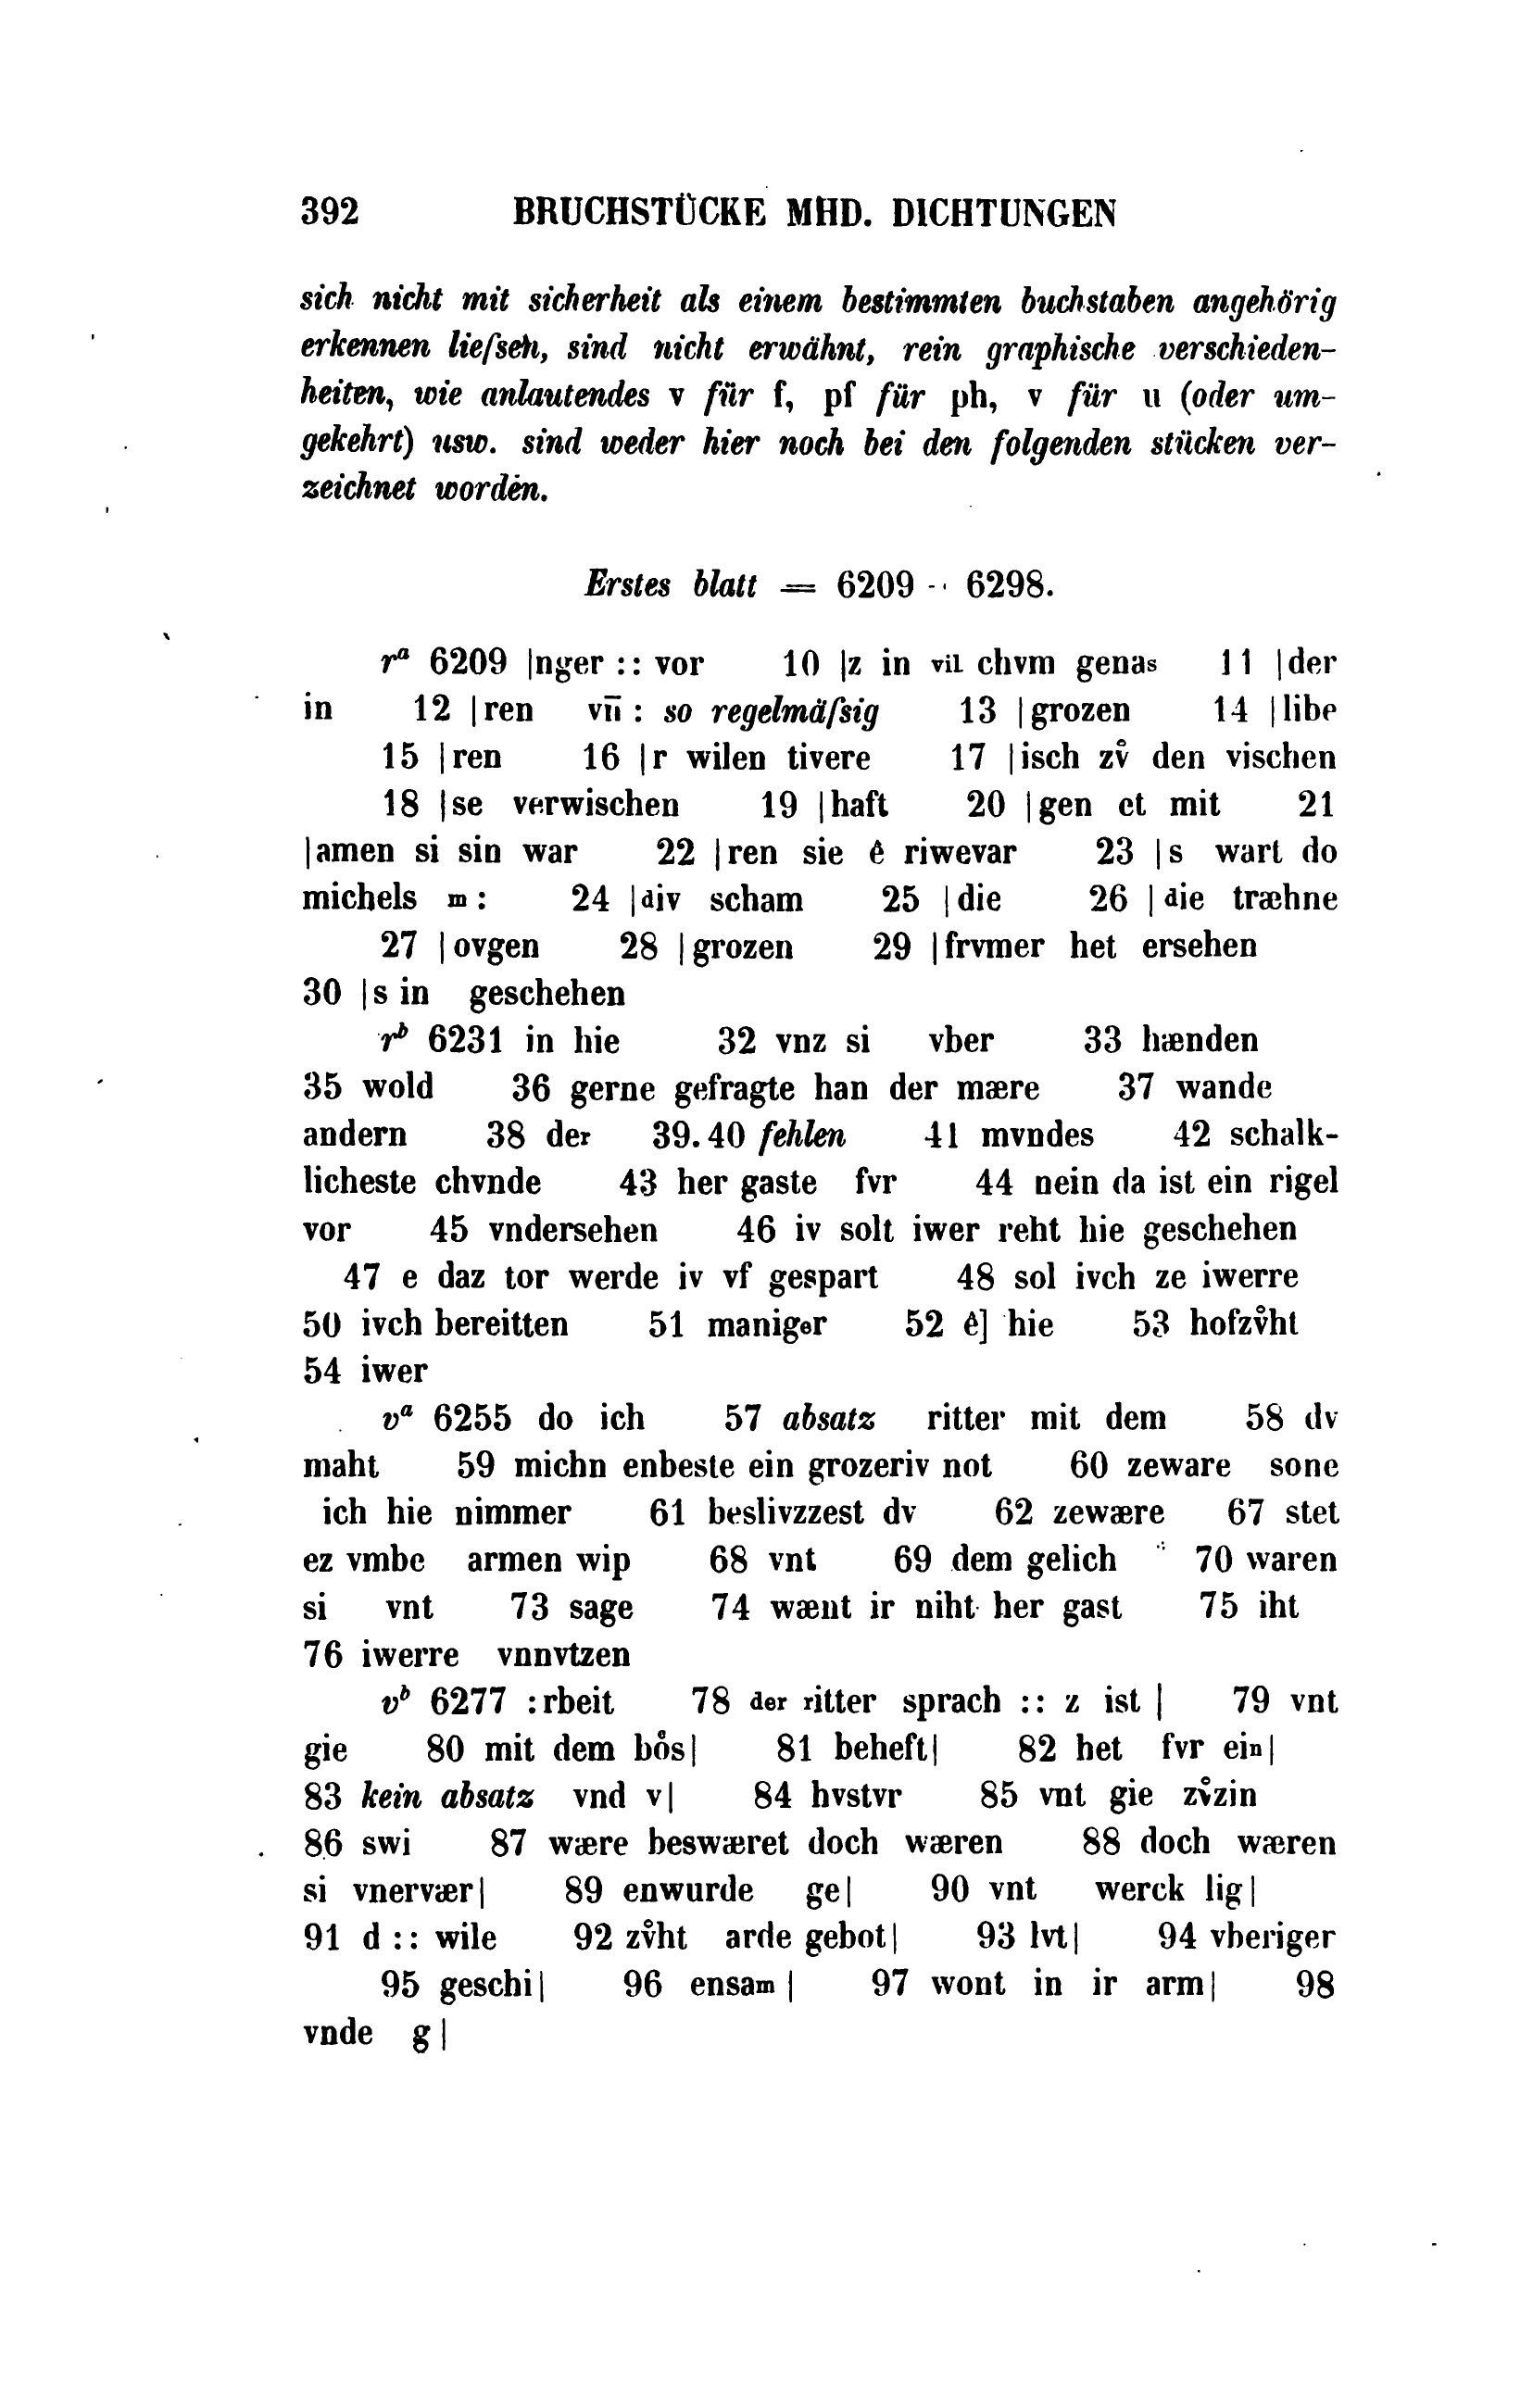 392 BRUCHSTÜCKE MHD. DICHTUNGEN
sich nicht mit sicherheit als einem bestimmten buchstaben angehörig
erkennen liefsen, sind nicht erwähnt, rein graphische verschieden-
heiten, wie anlautendes v für f, pf für ph, v für u (oder um-
gekehrt) usw. sind weder hier noch bei den folgenden stücken ver-
zeichnet worden.
Erstes blatt = 6209 - 6298.
rᵃ 6209 |nger :: vor 10 |z in vil chvm genas 11 |der
in 12 |ren vn̄ : so regelmäfsig 13 |grozen 14 |libe
15 |ren 16 |r wilen tivere 17 |isch zv̊ den vischen
18 |se verwischen 19 |haft 20 |gen et mit 21
|amen si sin war 22 |ren sie ê riwevar 23 |s wart do
michels m : 24 |div scham 25 |die 26 |die træhne
27 |ovgen 28 |grozen 29 |frvmer het ersehen
30 |s in geschehen
rᵇ 6231 in hie 32 vnz si vber 33 hænden
35 wold 36 gerne gefragte han der mære 37 wande
andern 38 der 39. 40 fehlen 41 mvndes 42 schalk-
licheste chvnde 43 her gaste fvr 44 nein da ist ein rigel
vor 45 vndersehen 46 iv solt iwer reht hie geschehen
47 e daz tor werde iv vf gespart 48 sol ivch ze iwerre
50 ivch bereitten 51 maniger 52 ê] hie 53 hofzv̊ht
54 iwer
vᵃ 6255 do ich 57 absatz ritter mit dem 58 dv
maht 59 michn enbeste ein grozeriv not 60 zeware sone
ich hie nimmer 61 beslivzzest dv 62 zewære 67 stet
ez vmbe armen wip 68 vnt 69 dem gelich 70 waren
si vnt 73 sage 74 wænt ir niht her gast 75 iht
76 iwerre vnnvtzen
vᵇ 6277 :rbeit 78 der ritter sprach :: z ist | 79 vnt
gie 80 mit dem bo̊s| 81 beheft| 82 het fvr ein|
83 kein absatz vnd v| 84 hvstvr 85 vnt gie zv̊zin
86 swi 87 wære beswæret doch wæren 88 doch wæren
si vnervær| 89 enwurde ge| 90 vnt werck lig|
91 d :: wile 92 zv̊ht arde gebot| 93 lvt| 94 vberiger
95 geschi| 96 ensam | 97 wont in ir arm| 98
vnde g|